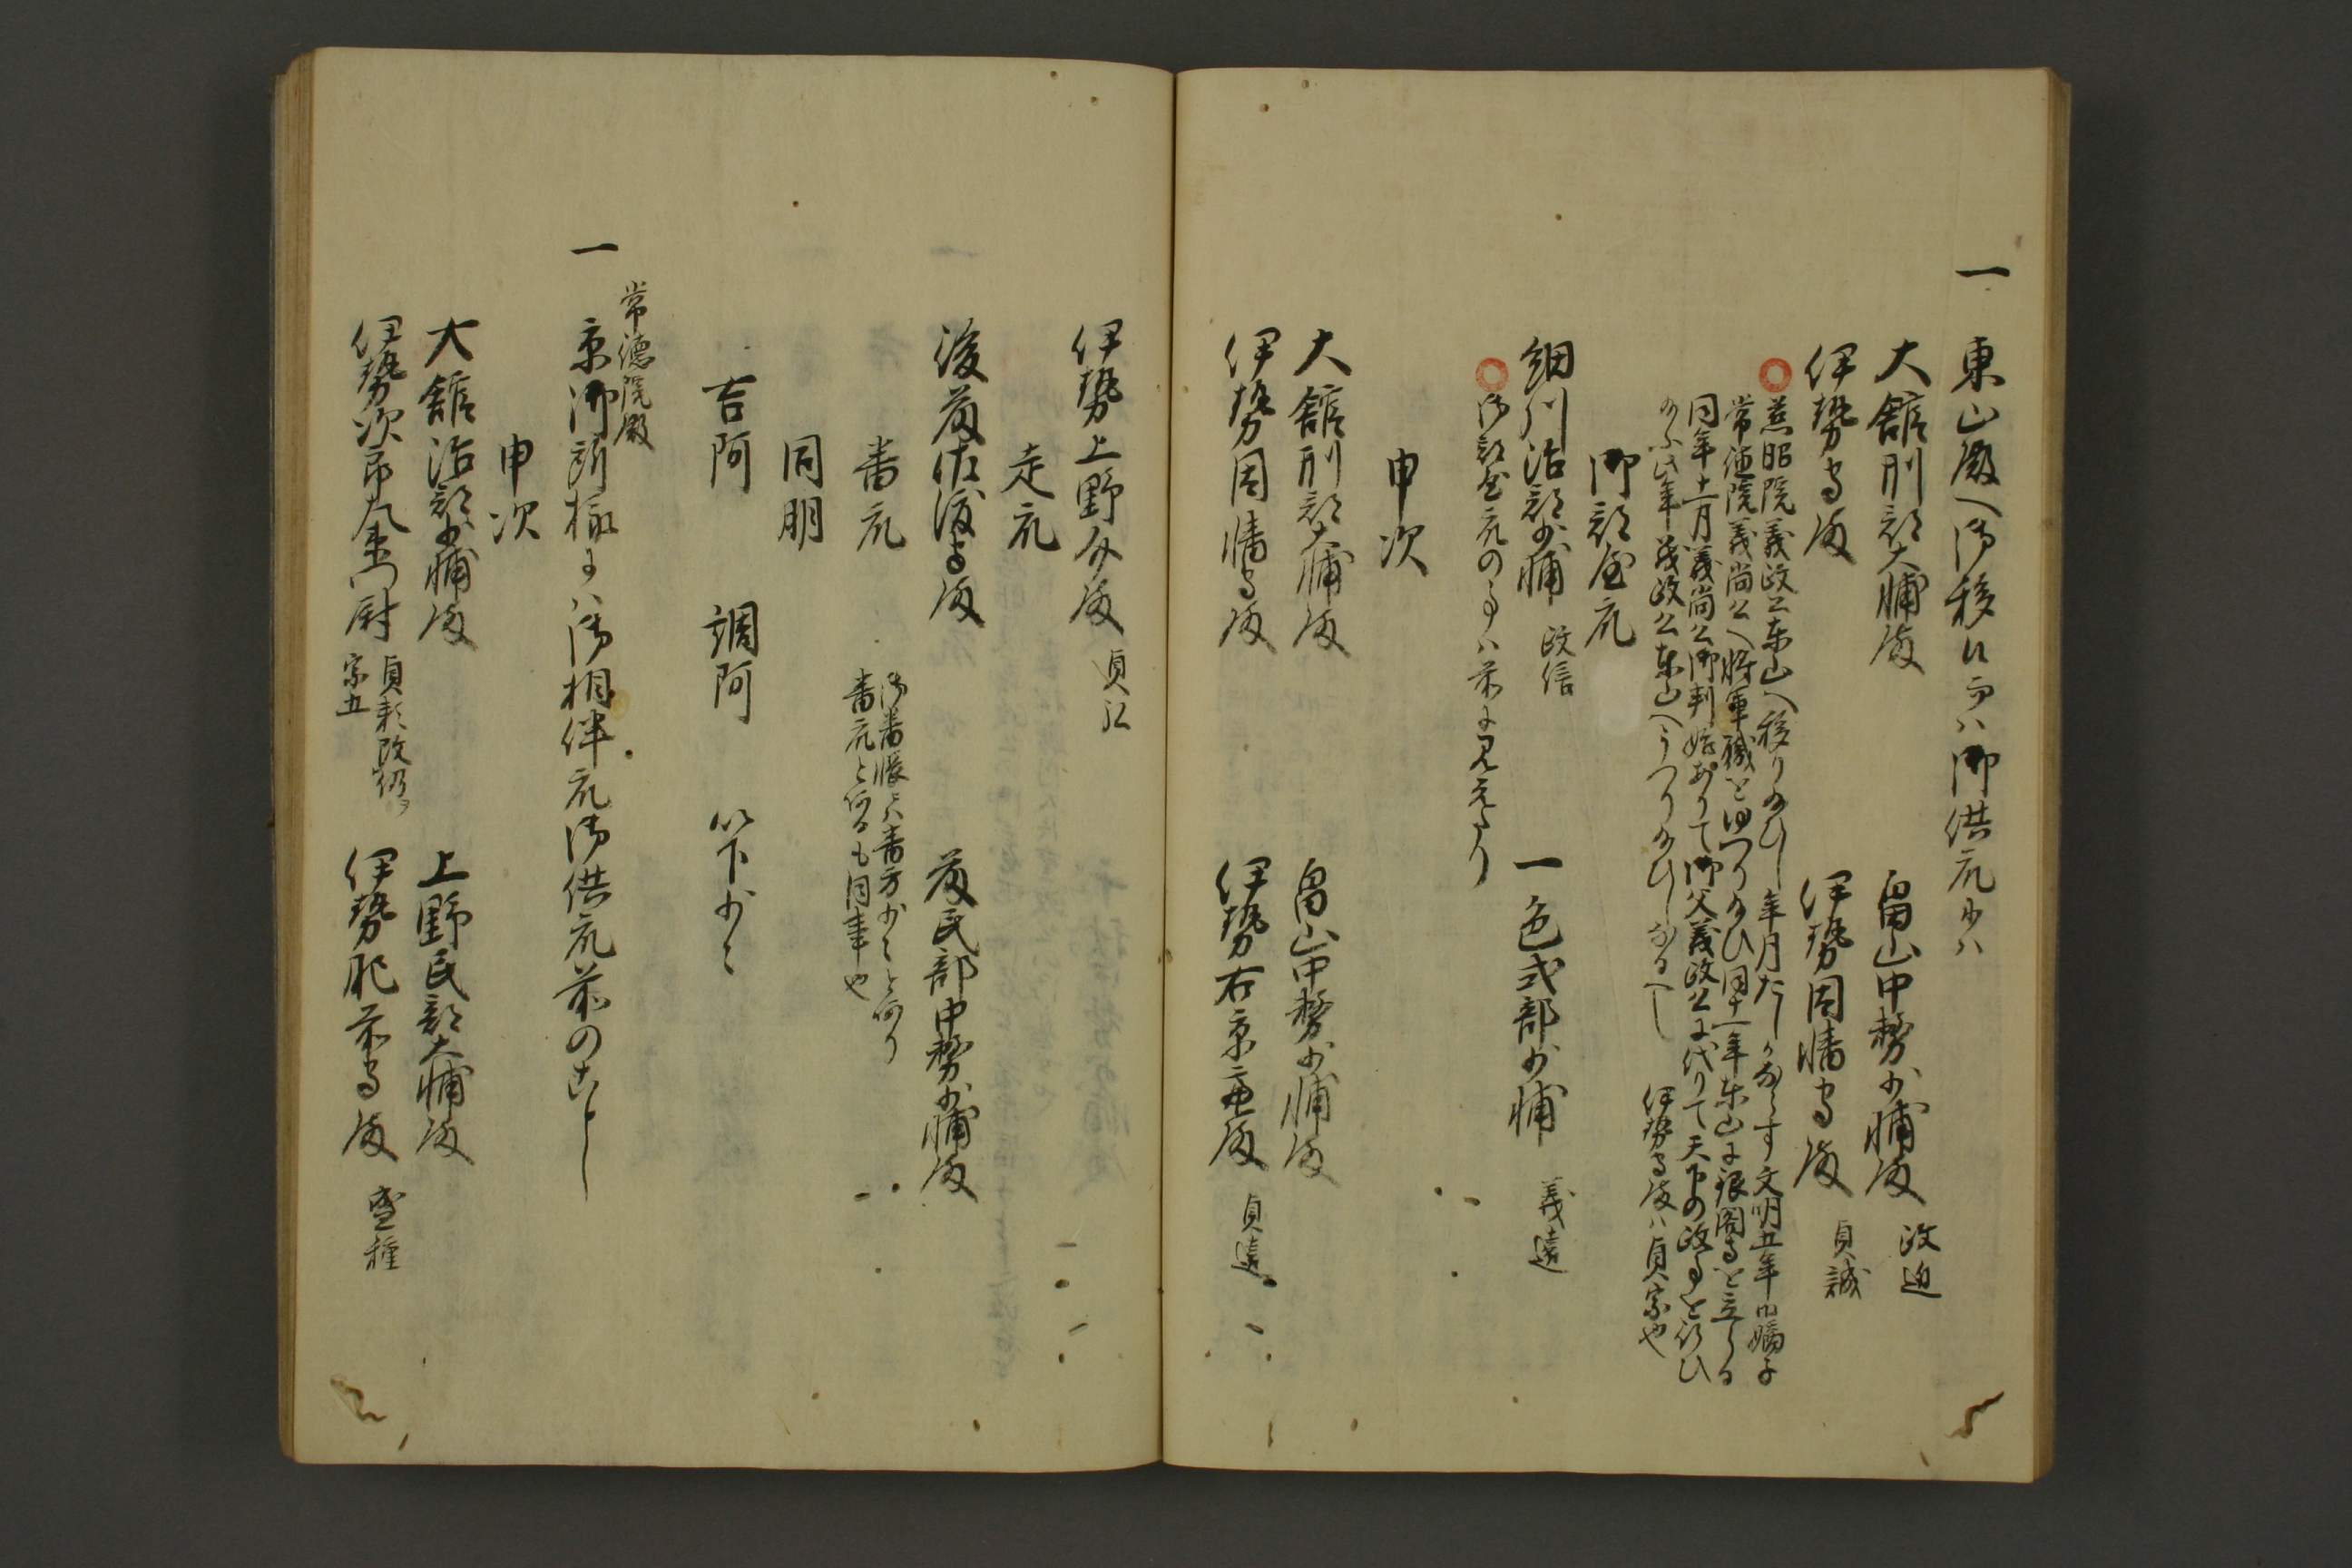 一 東山殿へ御移候而ハ御供衆少ハ
大舘刑部大輔殿 畠山中務少輔殿 政近
伊勢守殿 伊勢因幡守殿 貞誠
慈昭院義政公東山へ移り給ひし年月たしかならす文明五年御嫡子
常徳院義尚公へ将軍職をゆつり給ひ同十一年東山に銀閣寺を立らる
同年十一月義尚公御判始ありて御父義政公に代りて天下の政事を行ひ
給ふ此年義政公東山へうつり給ひしなるへし 伊勢守殿ハ貞宗也
御部屋衆
細川治部少輔 政信 一色式部少輔 義遠
御部屋衆の事ハ前に見えたり
申次
大舘刑部大輔殿 畠山中務少輔殿
伊勢因幡守殿 伊勢右京亮殿 貞遠
伊勢上野介殿 貞弘
走衆
後藤佐渡守殿 藤民部中務少輔殿
番衆 御番帳ニハ番方少々と有り
番衆と有るも同事也
同朋
吉阿 調阿 以下少々
常徳院殿
一 京御所様にハ御相伴衆御供衆前のことし
申次
大舘治部少輔殿 上野民部大輔殿
伊勢次郎左衛門尉 貞頼改名
宗五 伊勢肥前守殿 盛種